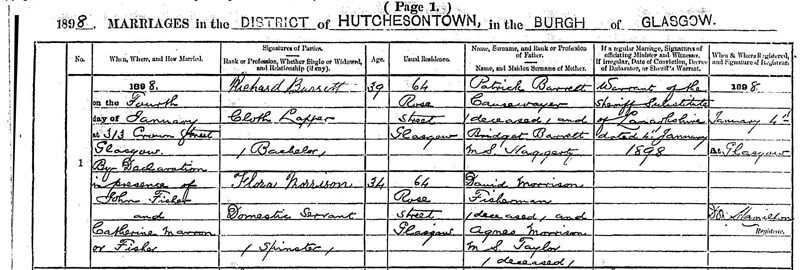 ( Page 1. )
1898. MARRIAGES in the DISTRICT of HUTCHESONTOWN, in the BURGH of GLASGOW.
No.
When, Where, and How Married.
Signatures of Parties.
Rank or Profession, Whether Single or Widowed, and Relationship (if any).
Age.
Usual Residence.
Name, Surname, and Rank or Profession of Father.
Name, and Maiden Surname of Mother.
If a regular Marriage, Signatures of officiating Minister and Witnesses.
If irregular, Date of Conviction, Decree of Declarator, or Sheriff's Warrant.
When & Where Registered, and Signature of Registrar.
1
1898.
on the Fourth
day of January
at 313 Crown Street
Glasgow.
By Declaration
in presence of
John Fisher
and
Catherine Marron
or Fisher
Richard Barrett
Cloth Lapper
(Bachelor)
Flora Morrison
Domestic Servant
(Spinster)
39
34
64
Rose
Street
Glasgow
64
Rose
Street
Glasgow
Patrick Barrett
Causewayer
(deceased) and
Bridget Barrett
M.S. Haggerty
David Morrison
Fisherman
(deceased) and
Agnes Morrison
M.S. Taylor
(deceased)
Warrant of the
Sheriff Substitute
of Lanarkshire
dated 4th January
1898
1898.
January 4th
At Glasgow
Hamilton
Registrar.